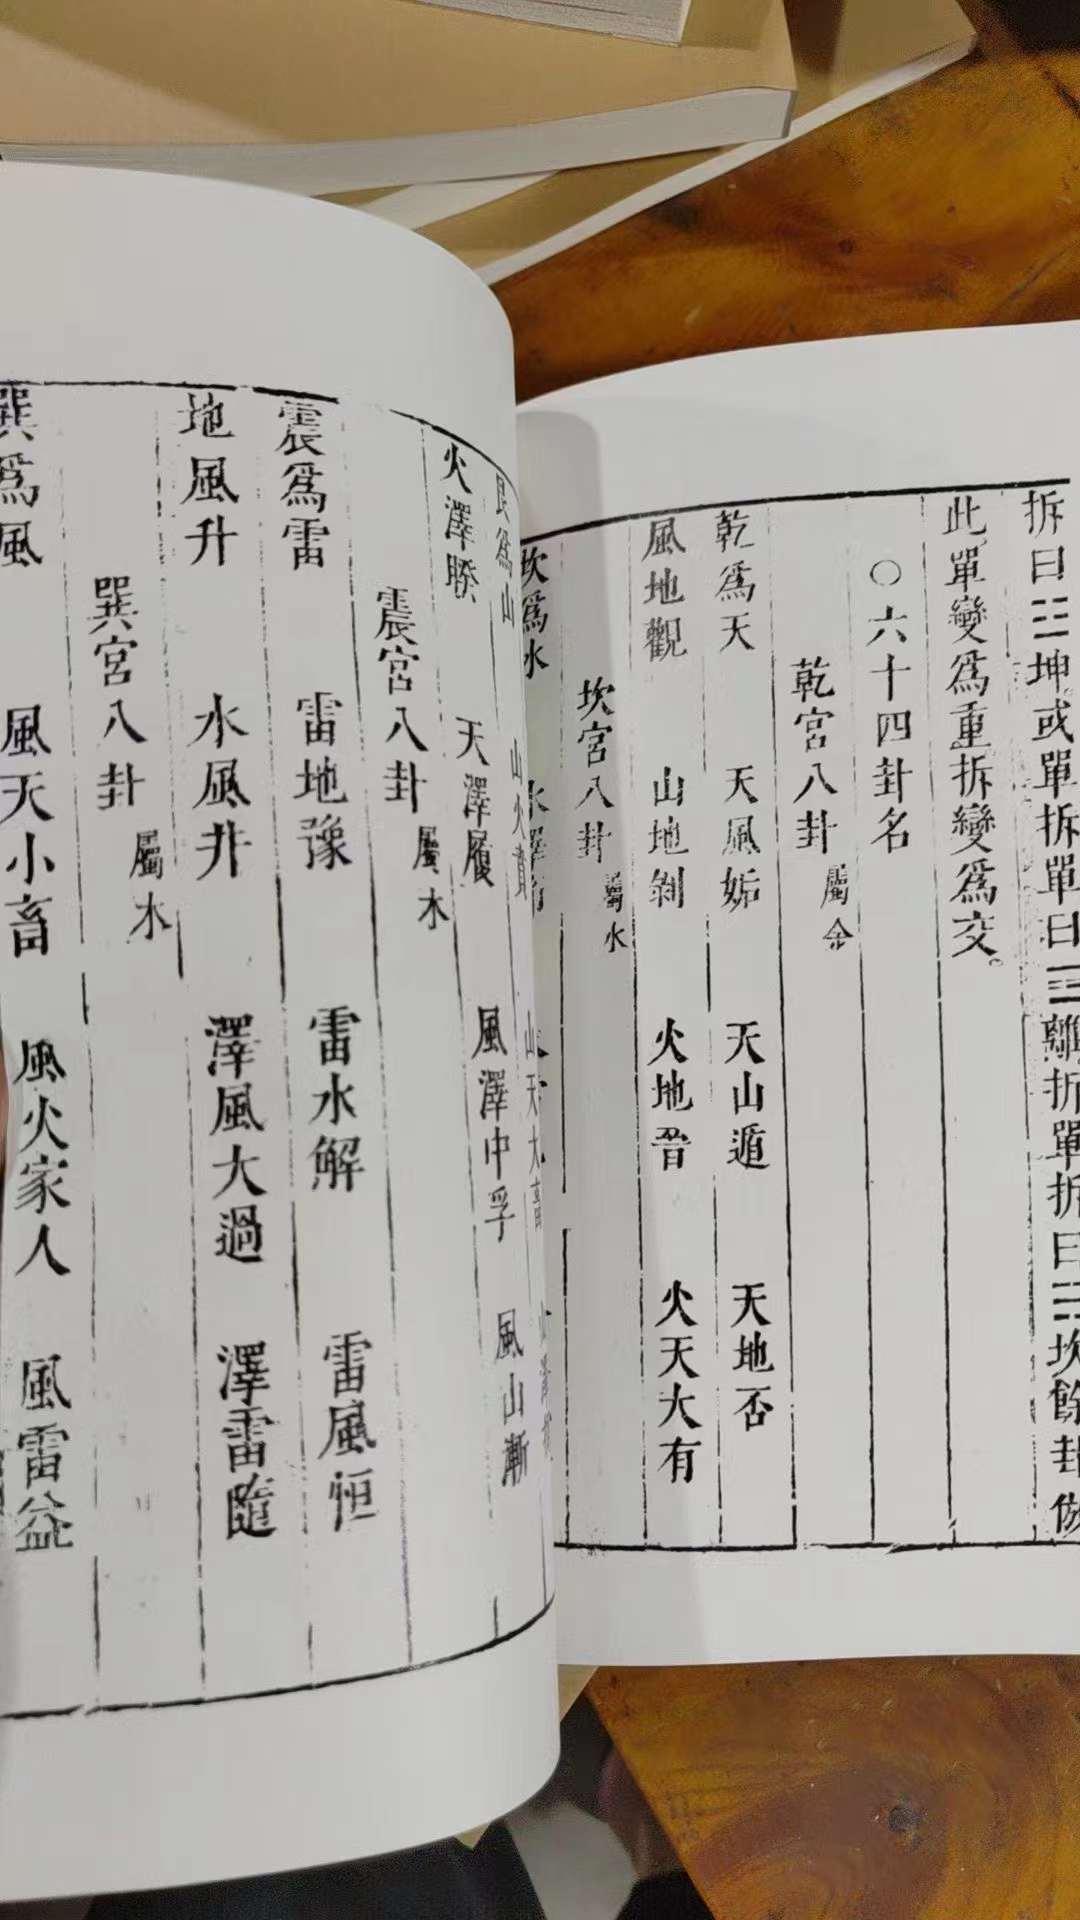 拆曰☷坤或單拆單曰☲離拆單拆曰☵坎餘卦倣
此單變爲重拆變爲交。
○六十四卦名
乾宮八卦 屬金
乾爲天 天風姤 天山遁 天地否
風地觀 山地剝 火地晉 火天大有
坎宮八卦 屬水
坎爲水
艮爲山 山火賁 山天大畜
火澤睽 天澤履 風澤中孚 風山漸
震宮八卦 屬木
震爲雷 雷地豫 雷水解 雷風恒
地風升 水風井 澤風大過 澤雷隨
巽宮八卦 屬木
巽爲風 風天小畜 風火家人 風雷益